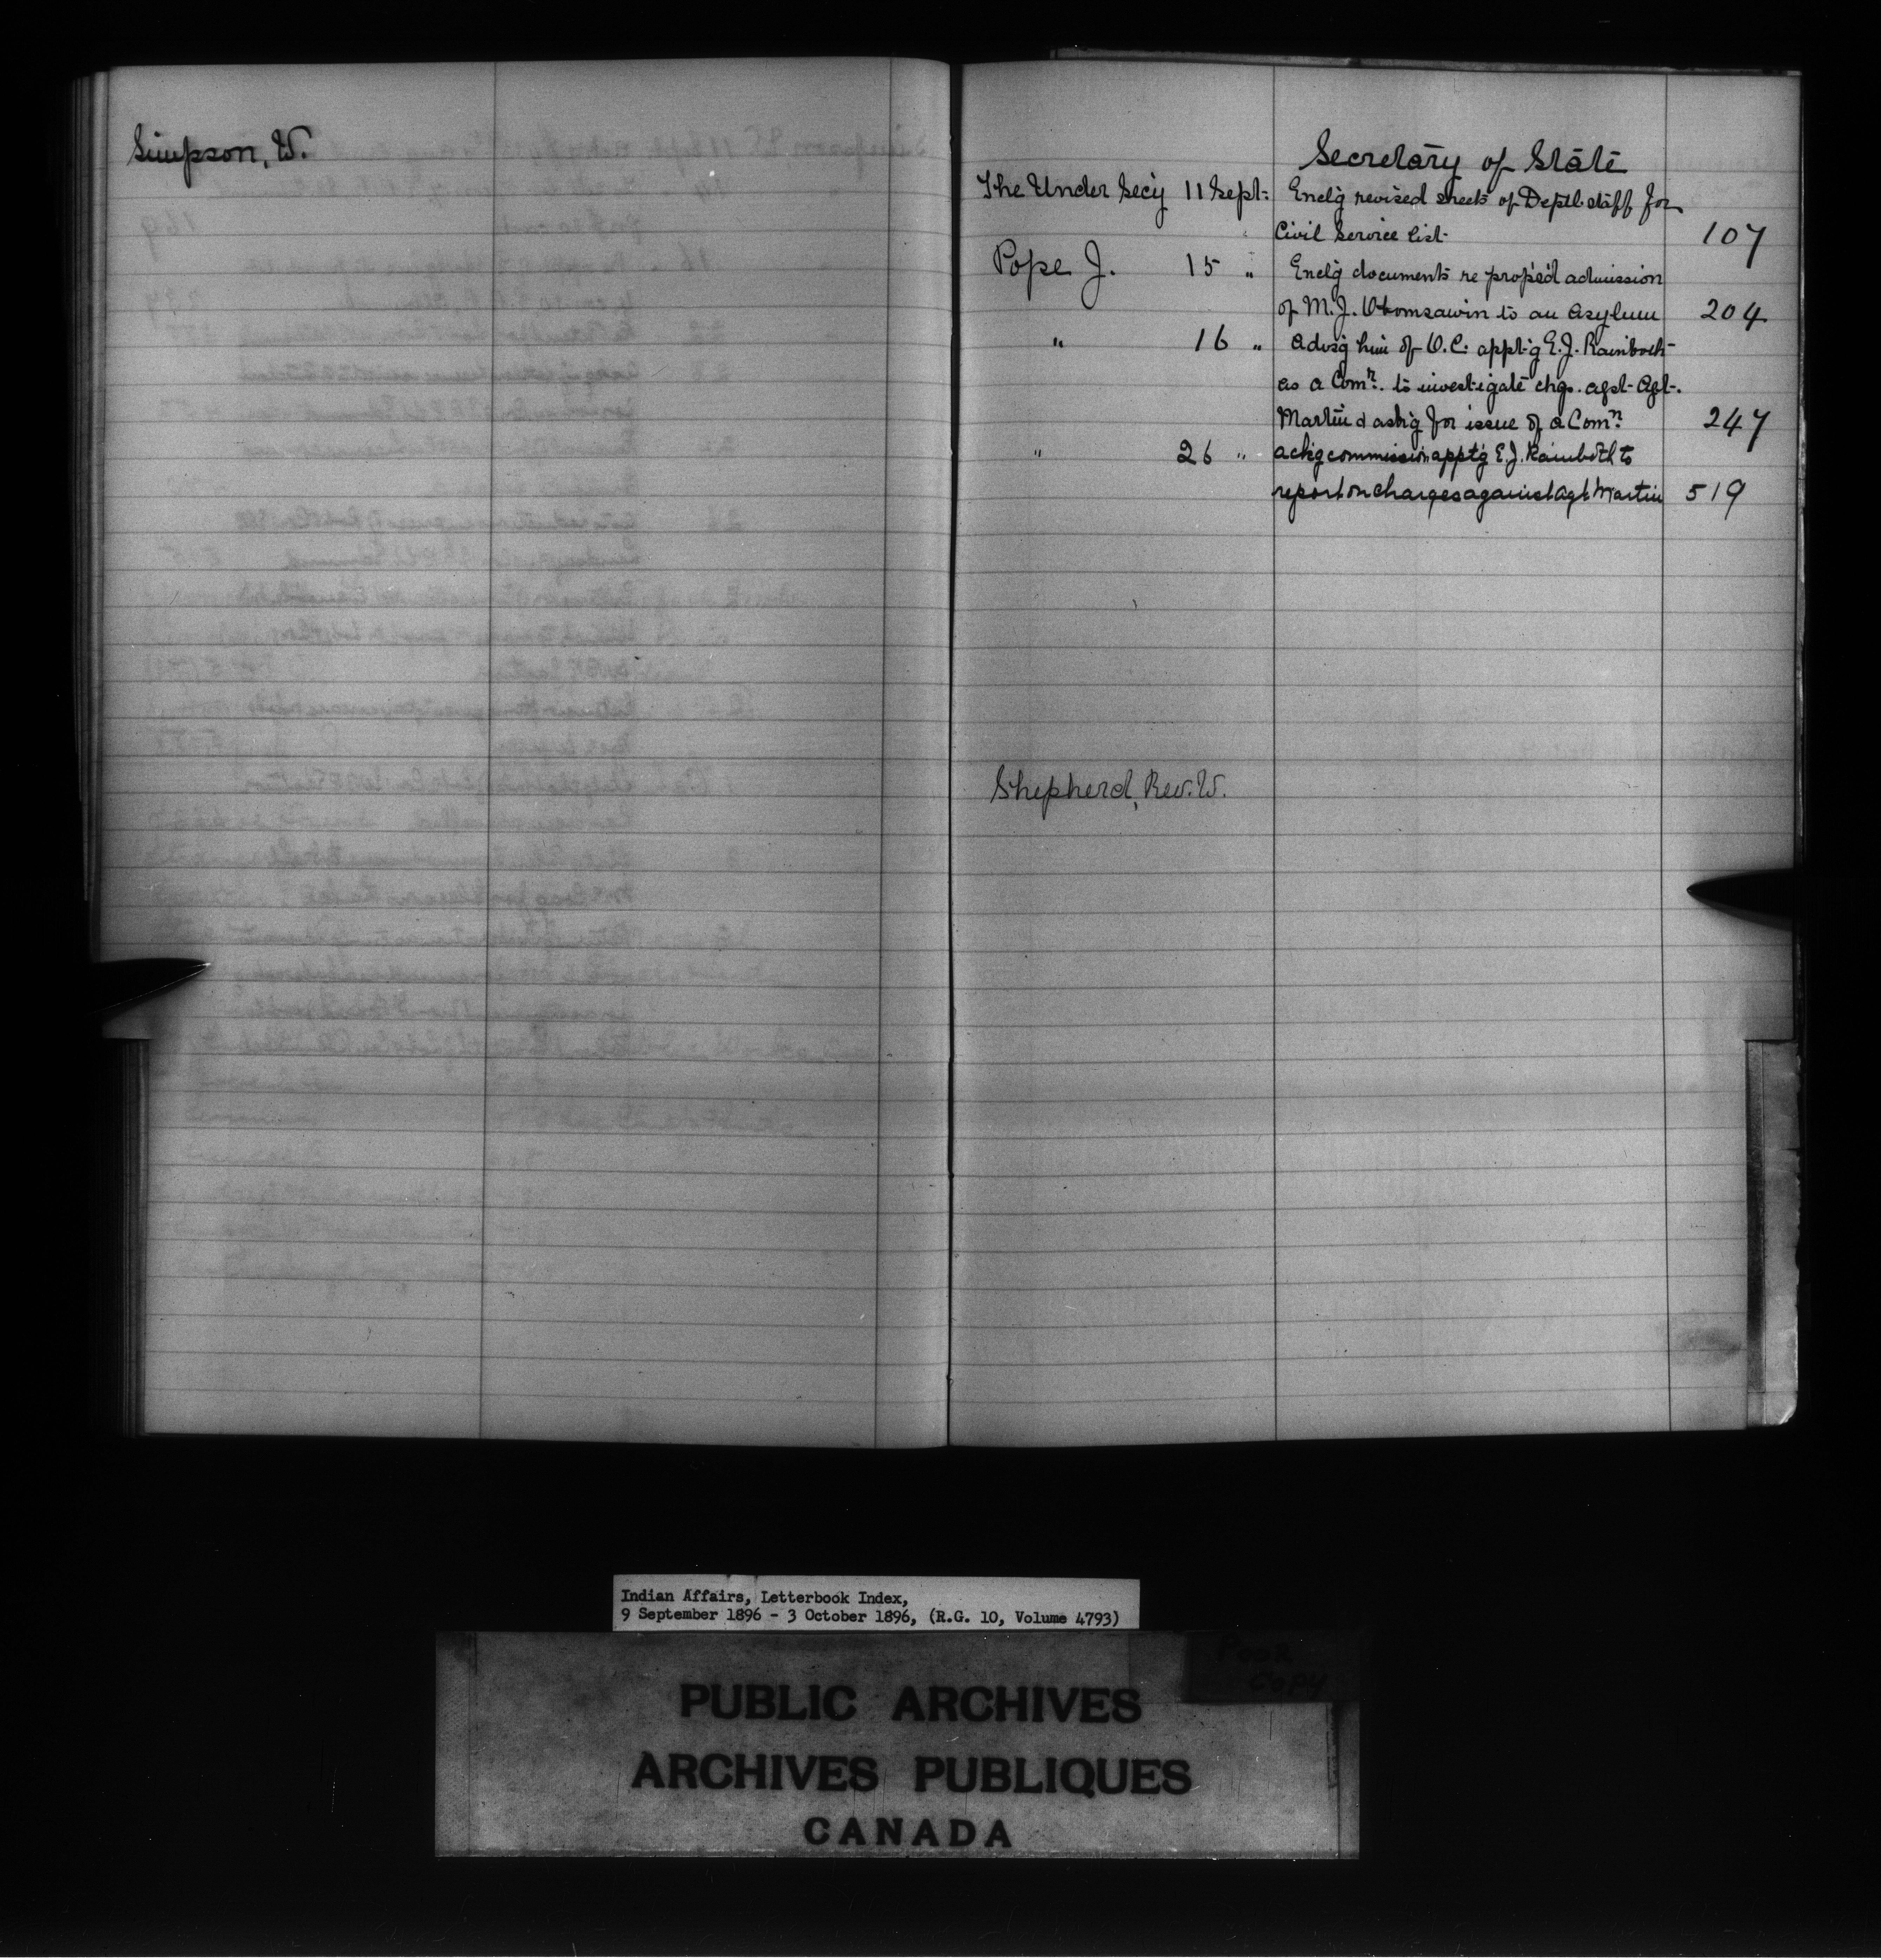 Simpson, W.
Secretary of State
The Under Secy 11 Sept: Enclg revised sheets of Deptl staff for
Civil Service list 107
Pope J. 15 " Enclg documents re propsd admission
of M. J. Obomsawin to an Asylum 204
" 16 " Advsg him of O.C. apptg E. J. Rainboth
as a Comn. to investigate chgs. agst Agt.
Martin & askg for issue of a Comn 247
" 26 " ackg commission apptg E. J. Rainboth to
report on charges against Agt Martin 519
Shepherd, Rev. W.
Indian Affairs, Letterbook Index,
9 September 1896 - 3 October 1896, (R.G. 10, Volume 4793)
POOR
COPY
PUBLIC ARCHIVES
ARCHIVES PUBLIQUES
CANADA